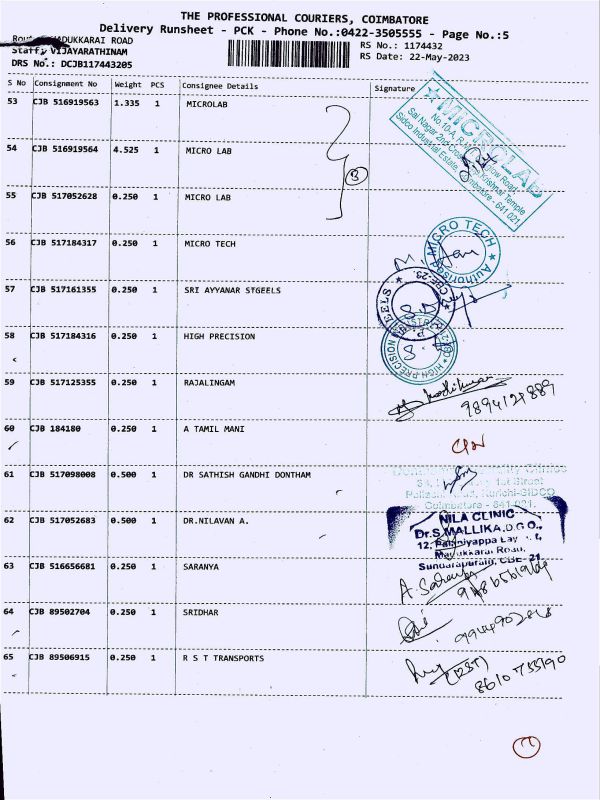 THE PROFESSIONAL COURIERS, COIMBATORE
Delivery Runsheet - PCK - Phone No.:0422-3505555 - Page No.:5
MADUKKARAI ROAD
RS No.: 1174432
Staff: VIJAYARATHINAM
RS Date: 22-May-2023
DRS No.: DCJB117443205
S No Consignment No Weight PCS Consignee Details Signature
53 CJB 516919563 1.335 1 MICROLAB
54 CJB 516919564 4.525 1 MICRO LAB
3
55 CJB 517052628 0.250 1 MICRO LAB
MICROLAB
Sidco Industrial Estate, Coimbatore - 641 021
56 CJB 517184317 0.250 1 MICRO TECH
MICRO TECH
57 CJB 517161355 0.250 1 SRI AYYANAR STGEELS
58 CJB 517184316 0.250 1 HIGH PRECISION
HIGH PRECISION
59 CJB 517125355 0.250 1 RAJALINGAM
9894121889
60 CJB 184180 0.250 1 A TAMIL MANI
61 CJB 517098008 0.500 1 DR SATHISH GANDHI DONTHAM
1st Street
Kurichi-SIDCO
Coimbatore - 641 021.
62 CJB 517052683 0.500 1 DR.NILAVAN A.
NILA CLINIC
Dr.S.MALLIKA,D.G.O.,
12, Palaniyappa
Madukkarai Road,
Sundarapuram, CBE - 21
63 CJB 516656681 0.250 1 SARANYA
A. Saranya
64 CJB 89502704 0.250 1 SRIDHAR
65 CJB 89506915 0.250 1 R S T TRANSPORTS
(RST)